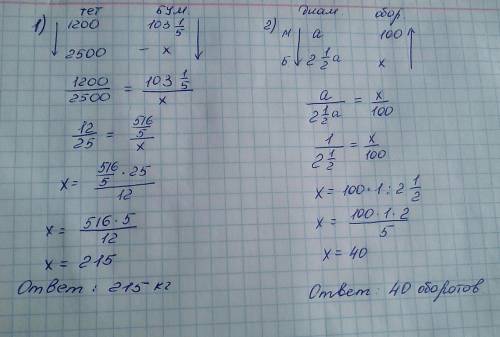 1) тет бум.
1200 103 1/5
2500 – x
1200/2500 = 103 1/5 / x
12/25 = 516/5 / x
x = 516/5 · 25 / 12
x = 516 · 5 / 12
x = 215
Ответ: 215 кг
2) диам. обор.
м a 100
Б 2 1/2 a x
a / 2 1/2 a = x/100
1 / 2 1/2 = x/100
x = 100 · 1 : 2 1/2
x = 100 · 1 · 2 / 5
x = 40
Ответ: 40 оборотов